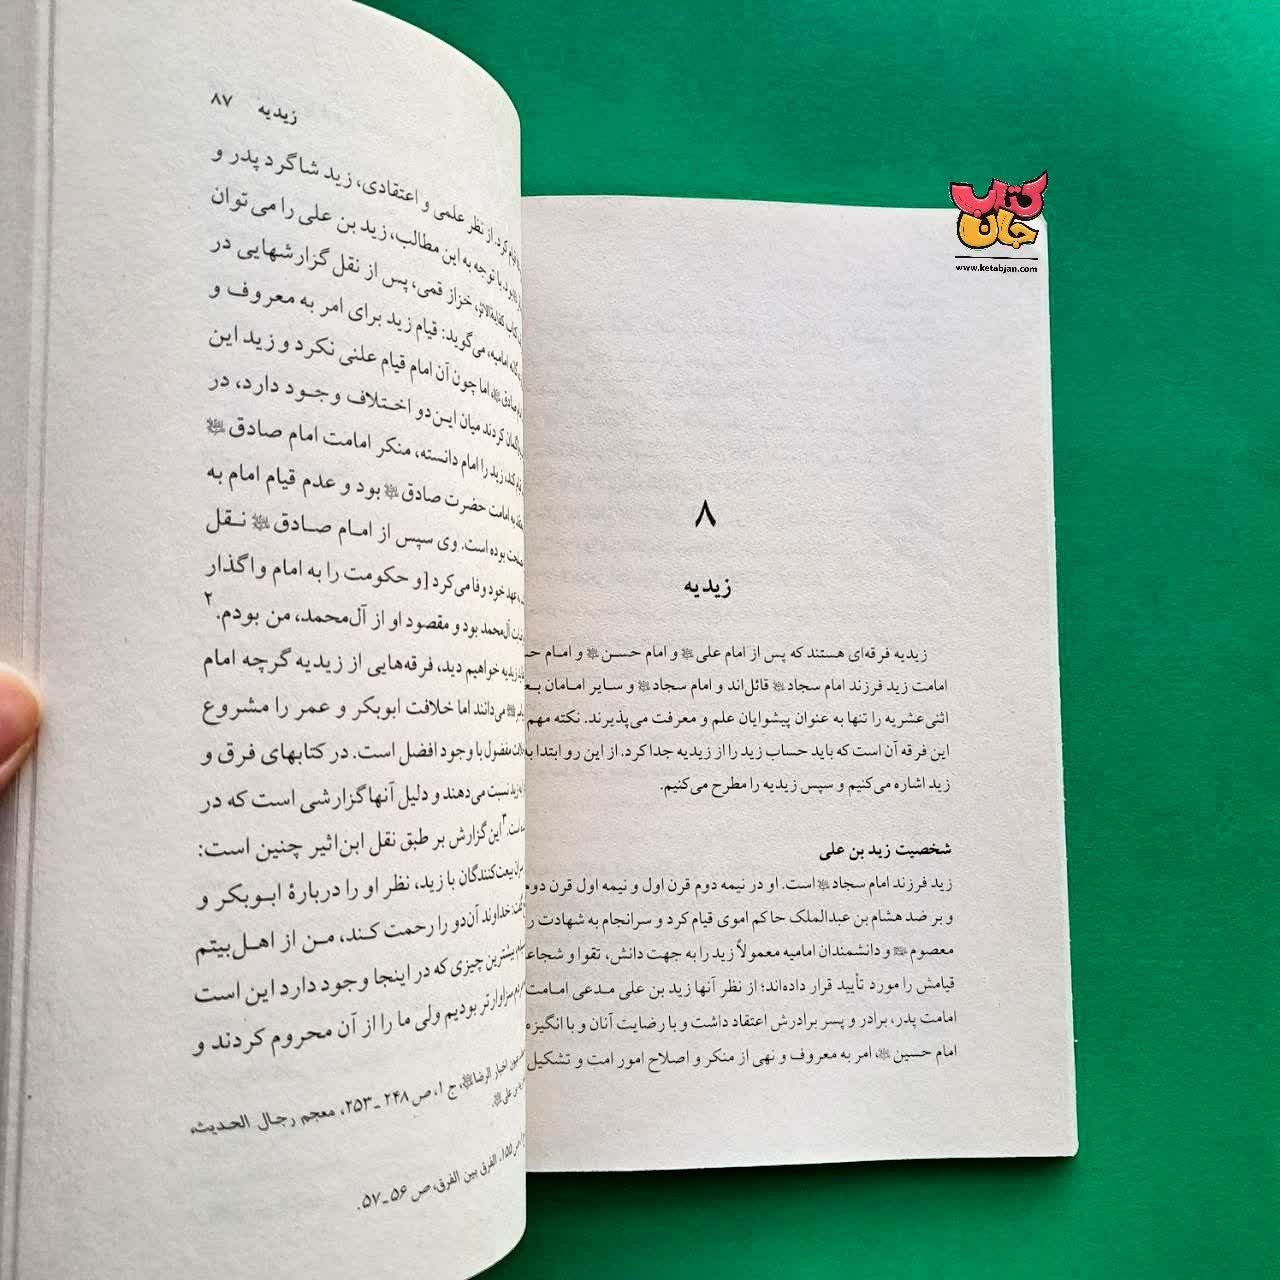 کتاب
جان
www.ketabjan.com
۸
زیدیه
زیدیه فرقه‌ای هستند که پس از امام علی و امام حسن و امام
امامت زید فرزند امام سجاد قائل‌اند و امام سجاد و سایر امامان
اثنی‌عشریه را تنها به عنوان پیشوایان علم و معرفت می‌پذیرند. نکته مهم
این فرقه آن است که باید حساب زید را از زیدیه جدا کرد. از این رو ابتدا
زید اشاره می‌کنیم و سپس زیدیه را مطرح می‌کنیم.
شخصیت زید بن علی
زید فرزند امام سجاد است. او در نیمه دوم قرن اول و نیمه اول قرن دوم
و بر ضد هشام بن عبدالملک حاکم اموی قیام کرد و سرانجام به شهادت
معصوم و دانشمندان امامیه معمولاً زید را به جهت دانش، تقوا و
قیامش را مورد تأیید قرار داده‌اند؛ از نظر آنها زید بن علی مدعی امامت
امامت پدر، برادر و پسر برادرش اعتقاد داشت و با رضایت آنان و با
امام حسین، امر به معروف و نهی از منکر و اصلاح امور امت و تشکیل
زیدیه ۸۷
کرد. از نظر علمی و اعتقادی، زید شاگرد پدر و
با توجه به این مطالب، زید بن علی را می‌توان
خزاز قمی، پس از نقل گزارشهایی در
امامیه، می‌گوید: قیام زید برای امر به معروف و
اما چون آن امام قیام علنی نکرد و زید این
کردند میان این دو اختلاف وجود دارد، در
زید را امام دانسته، منکر امامت امام صادق
به امامت حضرت صادق بود و عدم قیام امام به
بوده است. وی سپس از امام صادق نقل
عهد خود وفا می‌کرد [و حکومت را به امام واگذار
آل‌محمد بود و مقصود او از آل‌محمد، من بودم.۲
زیدیه خواهیم دید، فرقه‌هایی از زیدیه گرچه امام
می‌دانند اما خلافت ابوبکر و عمر را مشروع
مفضول با وجود افضل است. در کتابهای فرق و
به زید نسبت می‌دهند و دلیل آنها گزارشی است که در
است.۳ این گزارش بر طبق نقل ابن‌اثیر چنین است:
بیعت‌کنندگان با زید، نظر او را دربارهٔ ابوبکر و
گفت: خداوند آن دو را رحمت کند، من از اهل‌بیتم
بیشترین چیزی که در اینجا وجود دارد این است
سزاوارتر بودیم ولی ما را از آن محروم کردند و
اخبار الرضا، ج ۱، ص ۲۴۸ ـ ۲۵۳، معجم رجال الحدیث،
بن علی.
ص ۱۵۵، الفرق بین الفرق، ص ۵۶ ـ ۵۷.